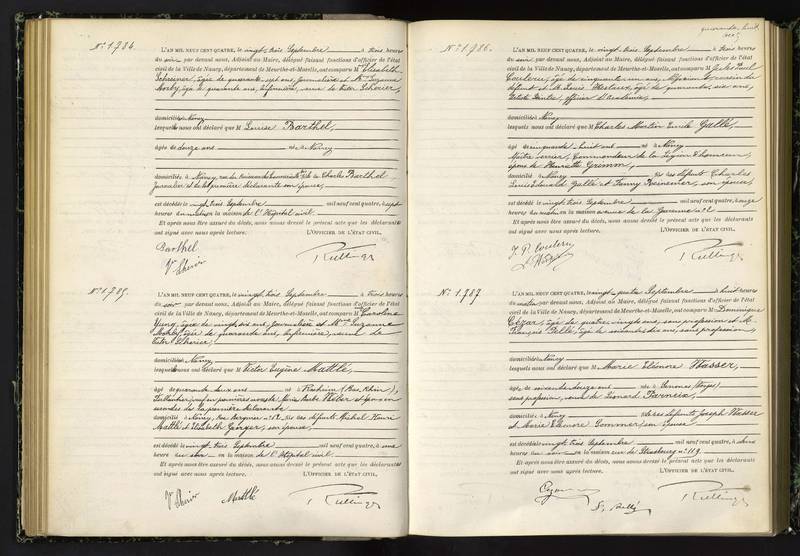 N° 1784.
L'AN MIL NEUF CENT QUATRE, le vingt trois Septembre à trois heures
du soir par devant nous, Adjoint au Maire, délégué faisant fonctions d'officier de l'état
civil de la Ville de Nancy, département de Meurthe-et-Moselle, ont comparu Mme Elisabeth
Schreiner, âgée de quarante sept ans, journalière et Mme Suzanne
âgée de quarante ans, infirmière, veuve de Victor Scherier,
domiciliés à Nancy
lesquels nous ont déclaré que M Louise Barthel,
âgée de douze ans née à Nancy
domiciliée à Nancy, rue du fille de Charles Barthel,
journalier et de la première déclarante son épouse,
est décédée le vingt trois Septembre mil neuf cent quatre, à sept
heures du matin en la maison de l'Hôpital civil.
Et après nous être assuré du décès, nous avons dressé le présent acte que les déclarants
ont signé avec nous après lecture. L'OFFICIER DE L'ÉTAT CIVIL,
Barthel
N° 1785.
L'AN MIL NEUF CENT QUATRE, le vingt trois Septembre à trois heures
du soir par devant nous, Adjoint au Maire, délégué faisant fonctions d'officier de l'état
civil de la Ville de Nancy, département de Meurthe-et-Moselle, ont comparu Mme Caroline
Yung, âgée de vingt six ans, journalière et Mme Suzanne
âgée de quarante ans, infirmière, veuve de
Victor Scherier,
domiciliés à Nancy
lesquels nous ont déclaré que M Victor Eugène Mattlé,
âgé de quarante deux ans né à Rixheim (Bas Rhin),
veuf en premières noces de Marie Barbe Weber et époux en
secondes de la première déclarante
domicilié à Nancy, rue n° 12 fils des défunts Michel Henri
Mattlé et Elisabeth son épouse,
est décédé le vingt trois Septembre mil neuf cent quatre, à une
heure du soir en la maison de l'Hôpital civil.
Et après nous être assuré du décès, nous avons dressé le présent acte que les déclarants
ont signé avec nous après lecture. L'OFFICIER DE L'ÉTAT CIVIL,
Mattlé
quarante huit
N° 1786.
L'AN MIL NEUF CENT QUATRE, le vingt trois Septembre à trois heures
du soir par devant nous, Adjoint au Maire, délégué faisant fonctions d'officier de l'état
civil de la Ville de Nancy, département de Meurthe-et-Moselle, ont comparu M Jules Paul
Couleru, âgé de cinquante un ans, Négociant, cousin du
défunt et M. Louis Hestaux, âgé de quarante six ans,
Artiste Peintre, officier d'académie,
domiciliés à Nancy
lesquels nous ont déclaré que M Charles Martin Emile Gallé,
âgé de cinquante huit ans né à Nancy
Maître verrier, Commandeur de la Légion d'honneur,
époux de Henriette Grimm,
domicilié à Nancy fils des défunts Charles
Louis Edouard Gallé et Fanny Reinemer, son épouse,
est décédé le vingt trois Septembre mil neuf cent quatre, à onze
heures du matin en la maison avenue de la Garenne n° 2
Et après nous être assuré du décès, nous avons dressé le présent acte que les déclarants
ont signé avec nous après lecture. L'OFFICIER DE L'ÉTAT CIVIL,
J. P. Couleru
N° 1787.
L'AN MIL NEUF CENT QUATRE, le vingt quatre Septembre à huit heures
du matin par devant nous, Adjoint au Maire, délégué faisant fonctions d'officier de l'état
civil de la Ville de Nancy, département de Meurthe-et-Moselle, ont comparu Mme Dominique
âgé de quatre vingts ans, sans profession et M.
François âgé de soixante dix ans, sans profession,
domiciliés à Nancy
lesquels nous ont déclaré que M Marie Eléonore Wasser,
âgée de soixante douze ans née à (Vosges)
sans profession, veuve de Léonard
domiciliée à Nancy fille des défunts Joseph Wasser
et Marie Eléonore Sommer, son épouse
est décédée le vingt trois Septembre mil neuf cent quatre, à deux
heures du soir en la maison rue de Strasbourg n° 119.
Et après nous être assuré du décès, nous avons dressé le présent acte que les déclarants
ont signé avec nous après lecture. L'OFFICIER DE L'ÉTAT CIVIL,